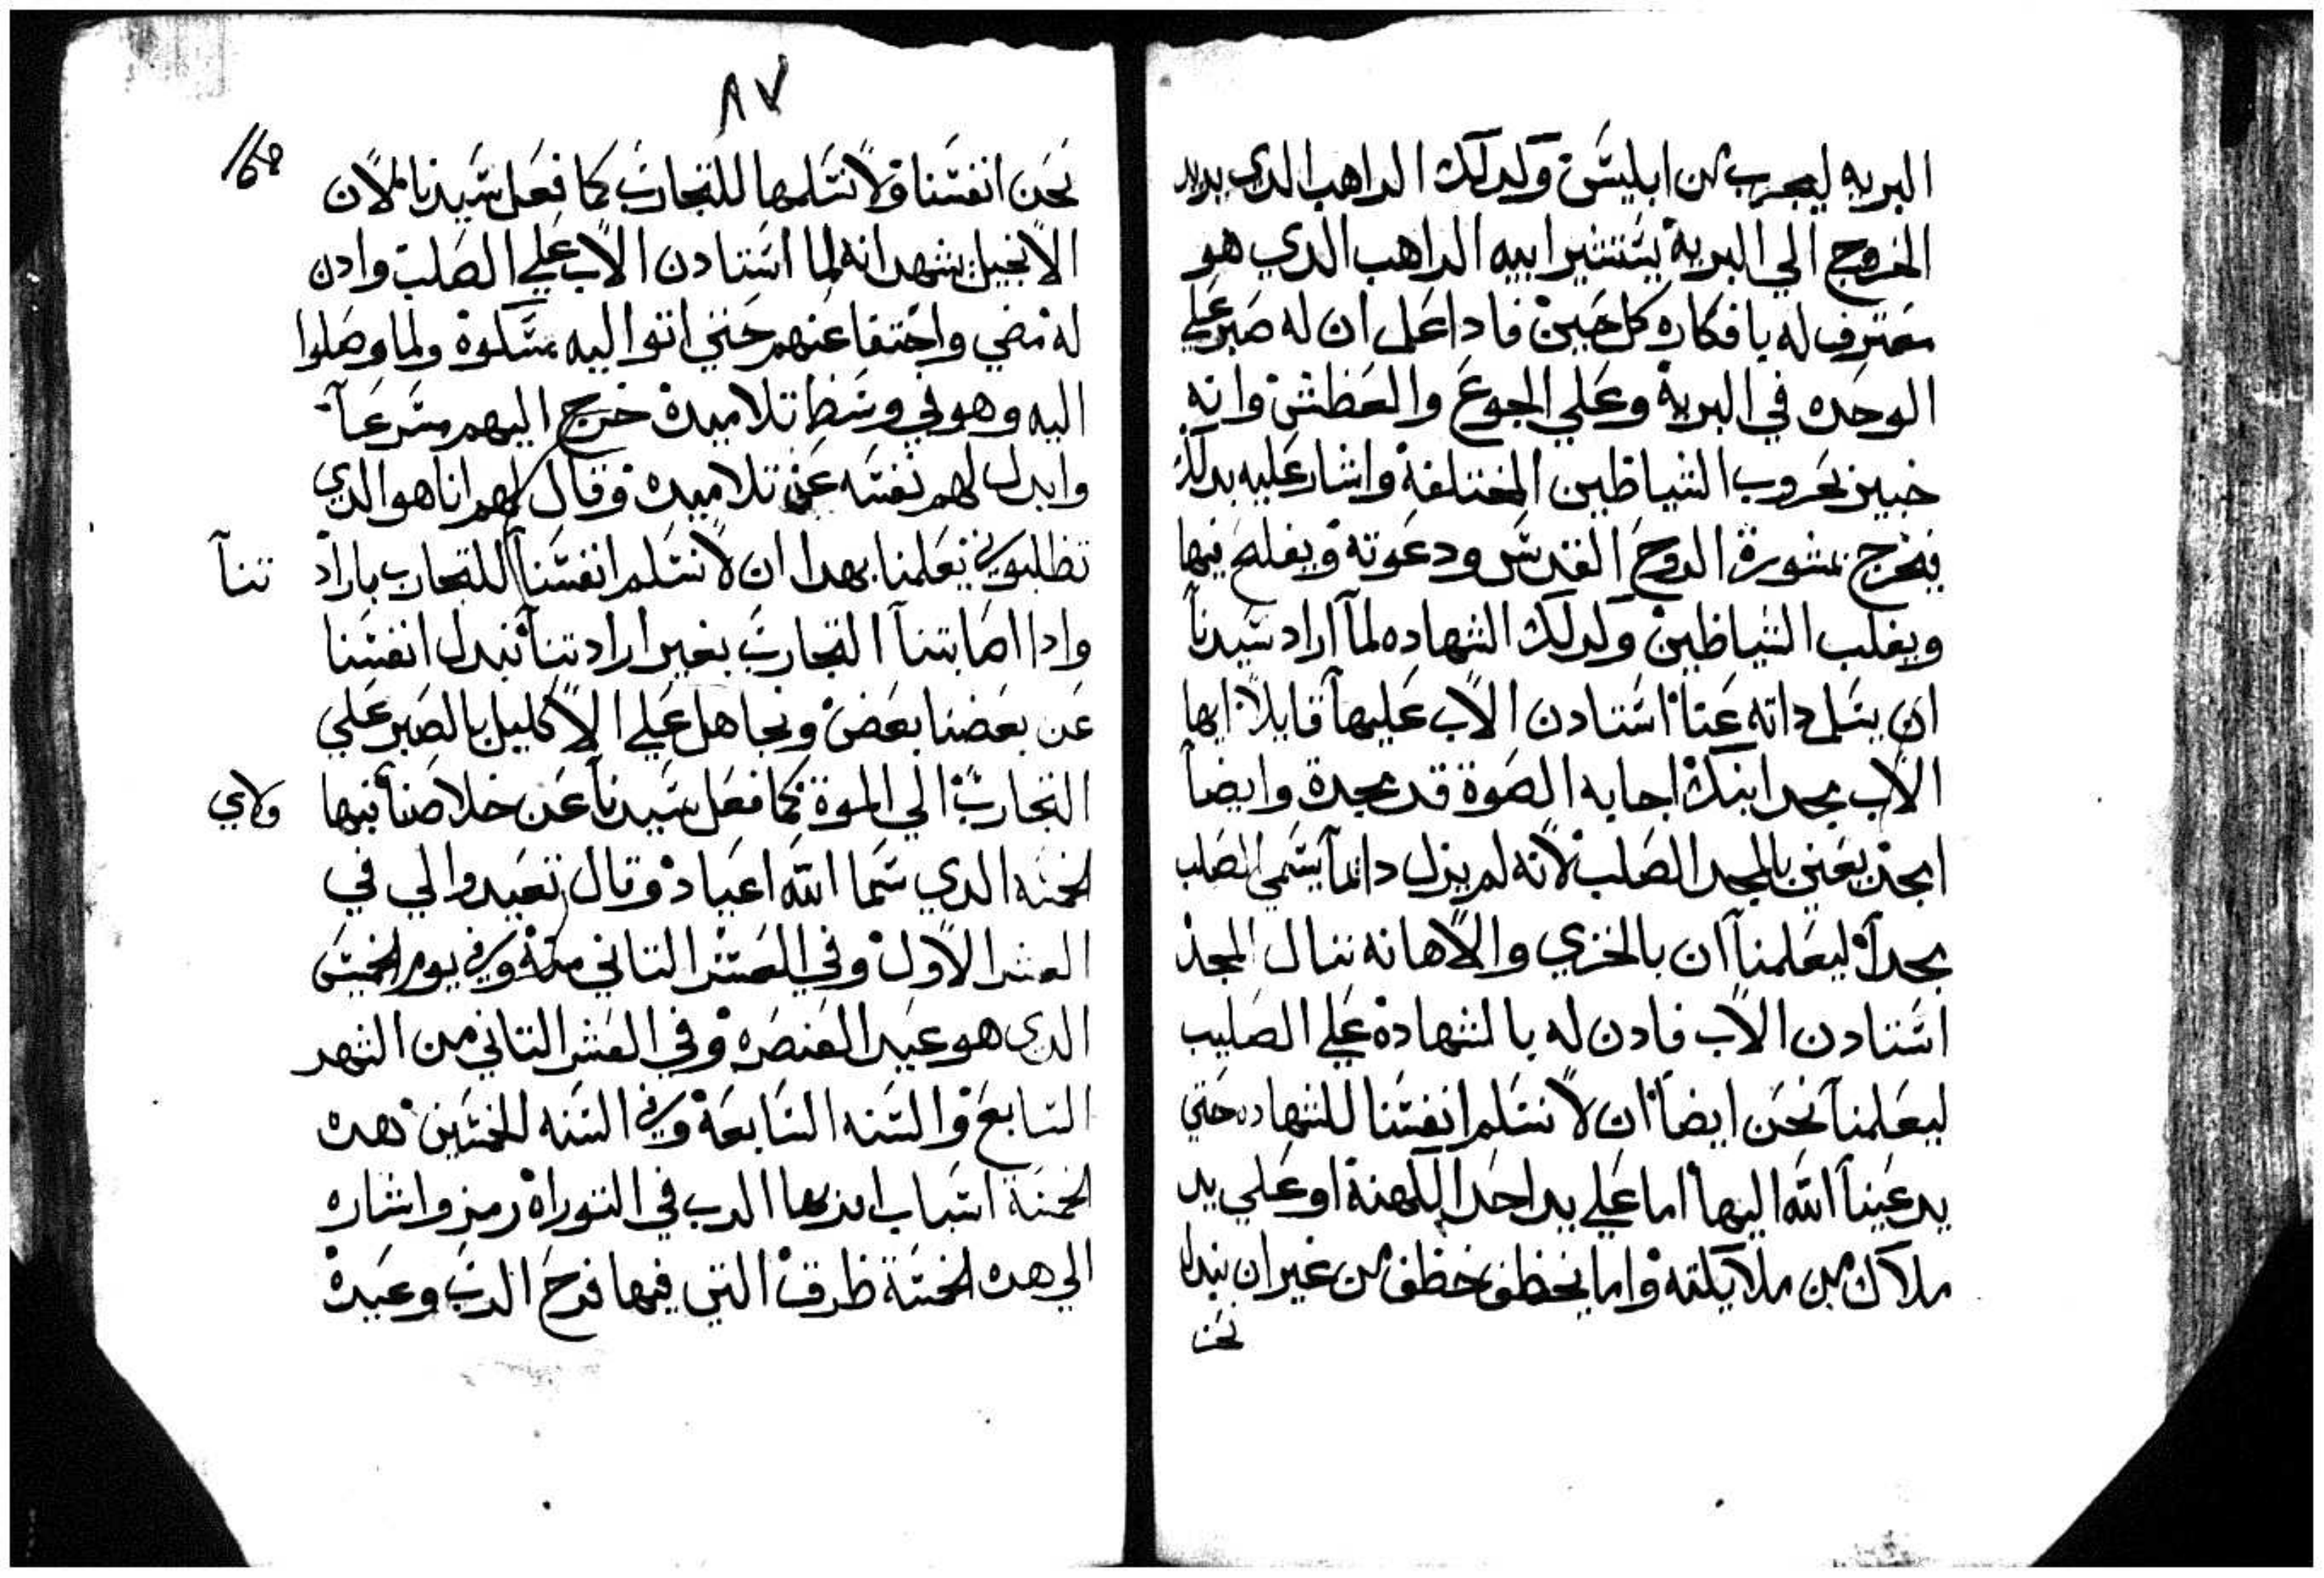 البريه ليجرب من ابليس وكدلك الراهب الدي يريد
الخروج الي البرية يستشير ابيه الراهب الدي هو
معترف له بافكاره كل حين فادا علم ان له صبر علي
الوحده في البرية وعلي الجوع والعطش وانه
خبير بحروب الشياطين المختلفة واشار عليه بدلك
فيخرج بمشورة الروح القدس ودعوته ويفلح فيها
ويغلب الشياطين وكدلك الشهاده لما اراد سيدنا
ان يسلم داته عنا استادن الاب عليها قايلا ايها
الاب مجد ابنك اجابه الصوة قد مجدة وايضا
امجد يعني بالمجد الصلب لانه لم يزل دايما يسمي الصلب
مجدا ليعلمنا ان بالخزي والاهانه ننال المجد
استادن الاب فادن له بالشهادة علي الصليب
ليعلمنا نحن ايضا ان لا نسلم انفسنا للشهاده حتي
يدعينا الله اليها اما علي يد احد الكهنة او علي يد
ملاك من ملايكته واما نخطف خطف من غير ان نبدل
نحن
٨٧
نحن انفسنا ولا نسلمها للتجارب كما فعل سيدنا لان
الانجيل يشهد انه لما استادن الاب علي الصلب وادن
له مضي واختفا عنهم حتي اتوا اليه مسكوة ولما وصلوا
اليه وهو في وسط تلاميده خرج اليهم مسرعا
وابدل لهم نفسه عن تلاميده وقال لهم انا هو الدي
تطلبوني يعلمنا بهدا ان لا نسلم انفسنا للتجارب باراد تنا
وادا اصابتنا التجارب بغير ارادتنا نبدل انفسنا
عن بعضنا بعض ونجاهل علي الاكليل بالصبر علي
التجارب الي الموة كما فعل سيدنا عن خلاصنا فيها ولاي
الخمسه الدي سما الله اعياد وقال تعيدوا لي في
العشر الاول وفي العشر التاني منة وفي يوم الخميس
الدي هو عيد العنصره وفي العشر التاني من الشهر
السابع والسنه السابعة وفي السنه الخمسين هده
الخمسة اسباب امر بها الرب في التوراة رمز واشاره
الي هده الخمسة طرق التي فيها فرح الرب وعيدة